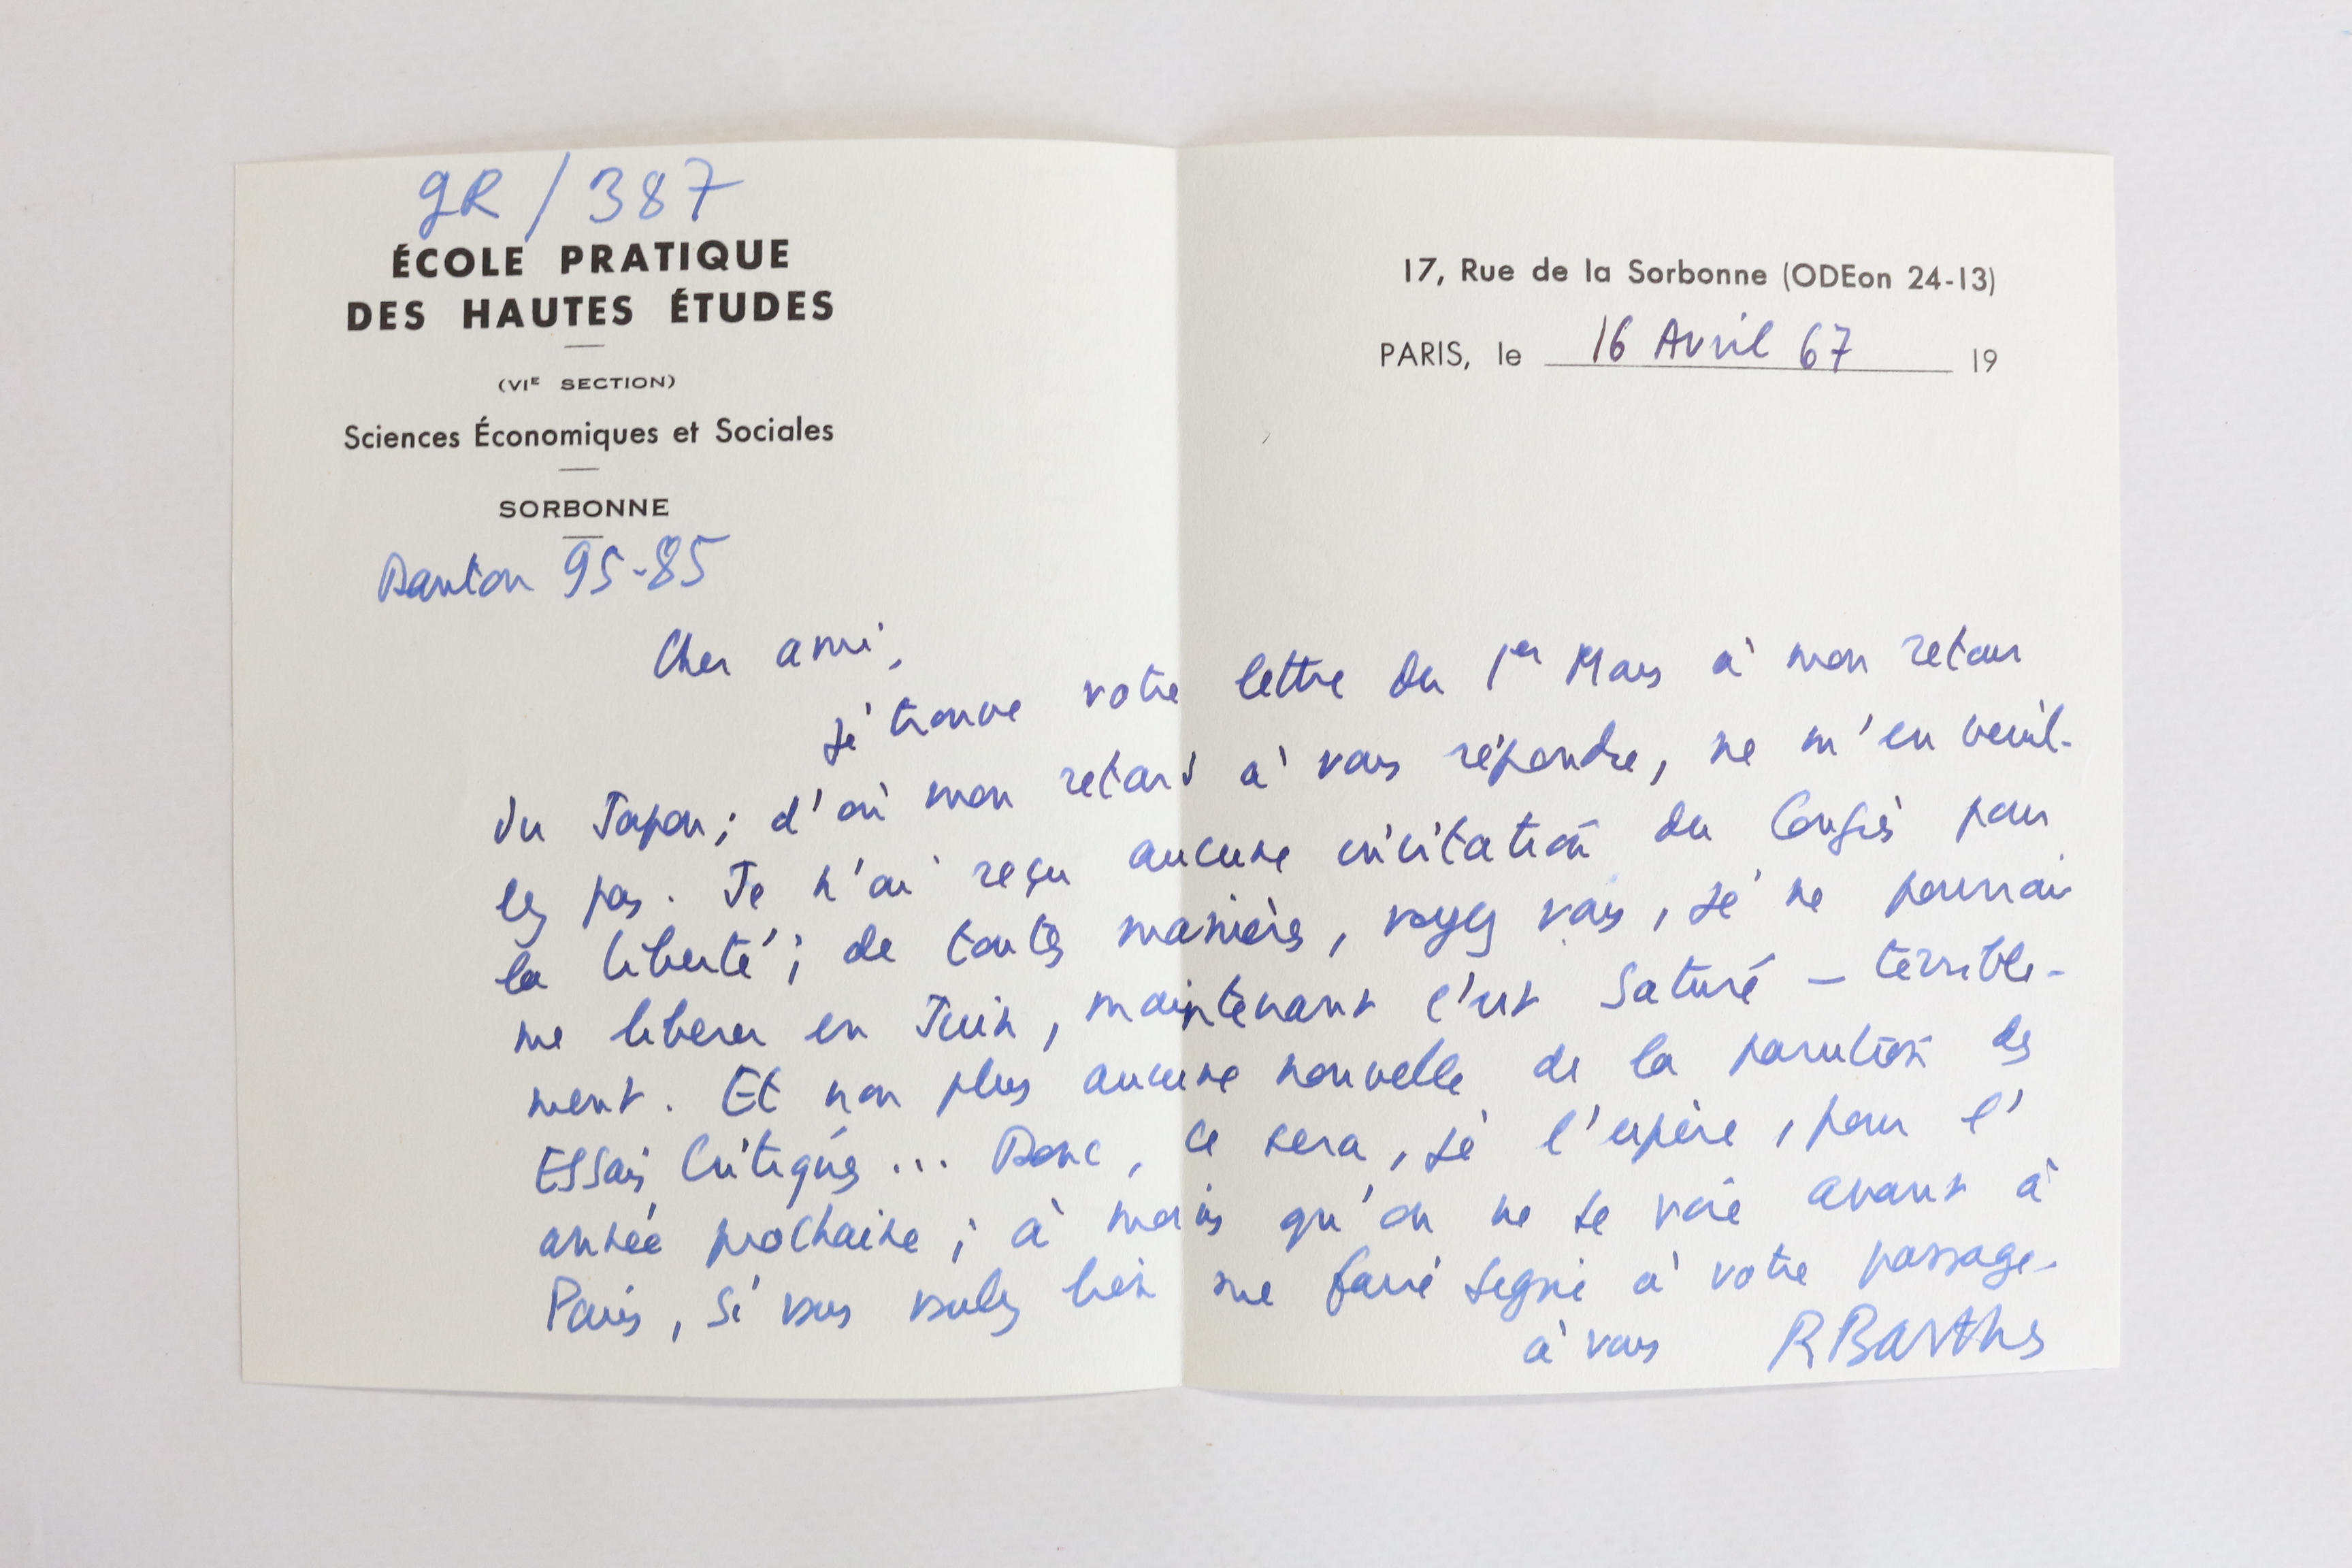 gR / 387
ÉCOLE PRATIQUE
DES HAUTES ÉTUDES
(VIE SECTION)
Sciences Économiques et Sociales
SORBONNE
Danton 95-85
17, Rue de la Sorbonne (ODEon 24-13)
PARIS, le 16 Avril 67 19
Cher ami,
je trouve votre lettre du 1er Mars à mon retour
du Japon; d'où mon retard à vous répondre, ne m'en veuil-
lez pas. Je n'ai reçu aucune invitation du Congrès pour
la liberté; de toutes manières, voyez vous, je ne pourrai
me libérer en Juin, maintenant c'est saturé – terrible-
ment. Et non plus aucune nouvelle de la parution des
Essais Critiques... Donc, ce sera, je l'espère, pour l'
année prochaine; à moins qu'on ne se voie avant à
Paris, si vous voulez bien me faire signe à votre passage.
à vous R Barthes